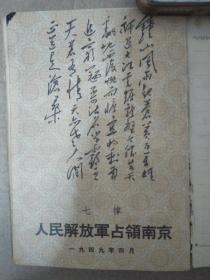 鐘山風雨起蒼黄百万雄
师过大江虎踞龙盘今胜昔天
翻地覆慨而慷宜将剩勇
追穷寇不可沽名学霸王
天若有情天亦老人间
正道是滄桑
七律
人民解放軍占領南京
一九四九年四月